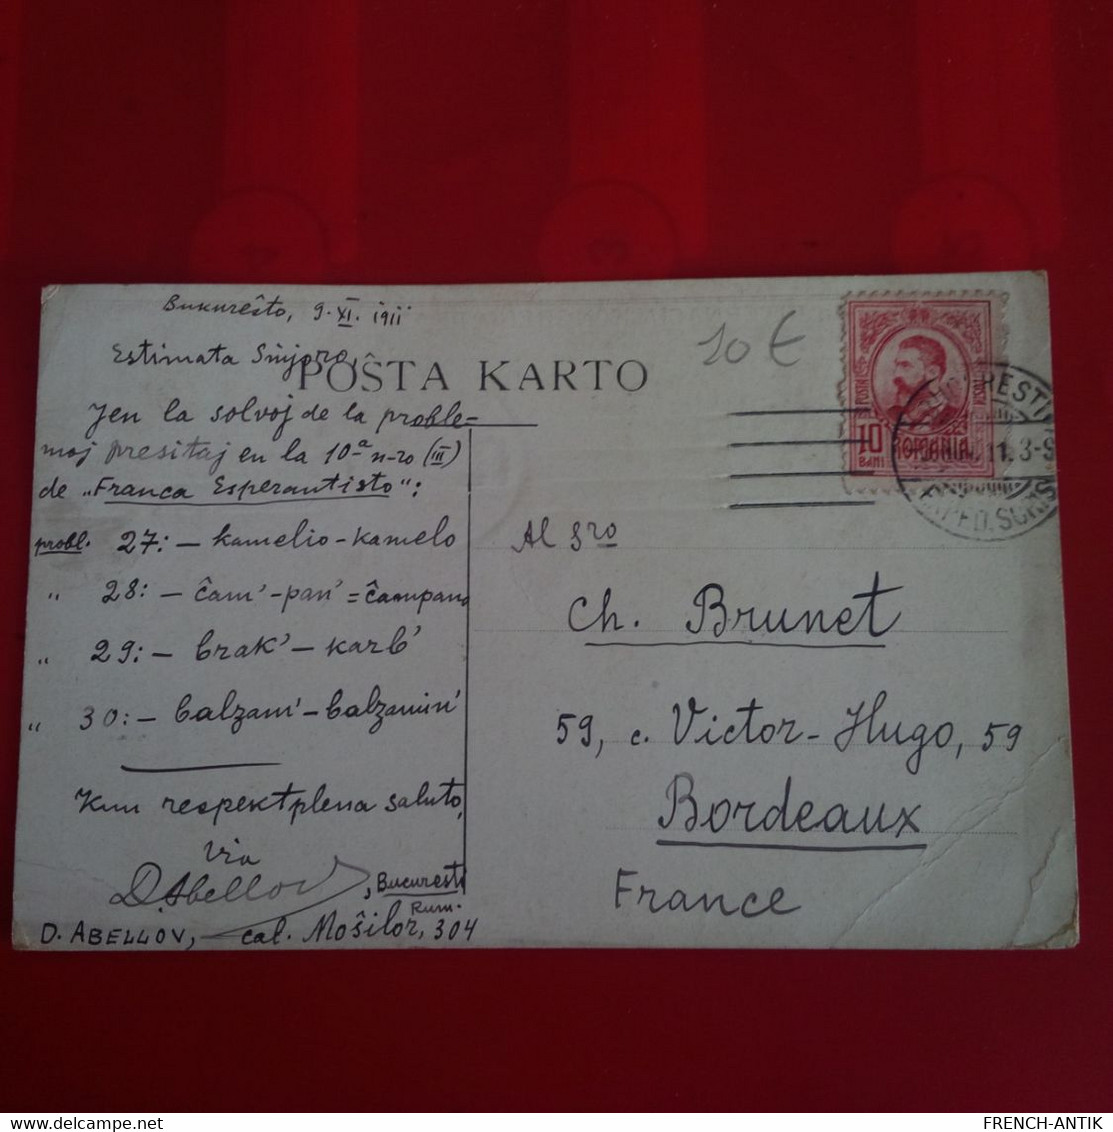 Bukureŝto, 9. XI. 1911
Estimata Sinjoro,
POŜTA KARTO
10 €
Jen la solvoj de la proble-
moj presitaj en la 10ª n-ro (III)
de „Franca Esperantisto":
probl. 27: – kamelio - kamelo
„ 28: – ĉam' - pan' = ĉampano
„ 29: – brak' – karb'
„ 30: – balzam' – balzamin'
Kun respektplena saluto,
via
D. Abellov, Bucuresti
Rum.
D. ABELLOV, cal. Moŝilor, 304
Al Sro
Ch. Brunet
59, r. Victor-Hugo, 59
Bordeaux
France
10
BANI
ROMANIA
11. 3-S
FRENCH-ANTIK